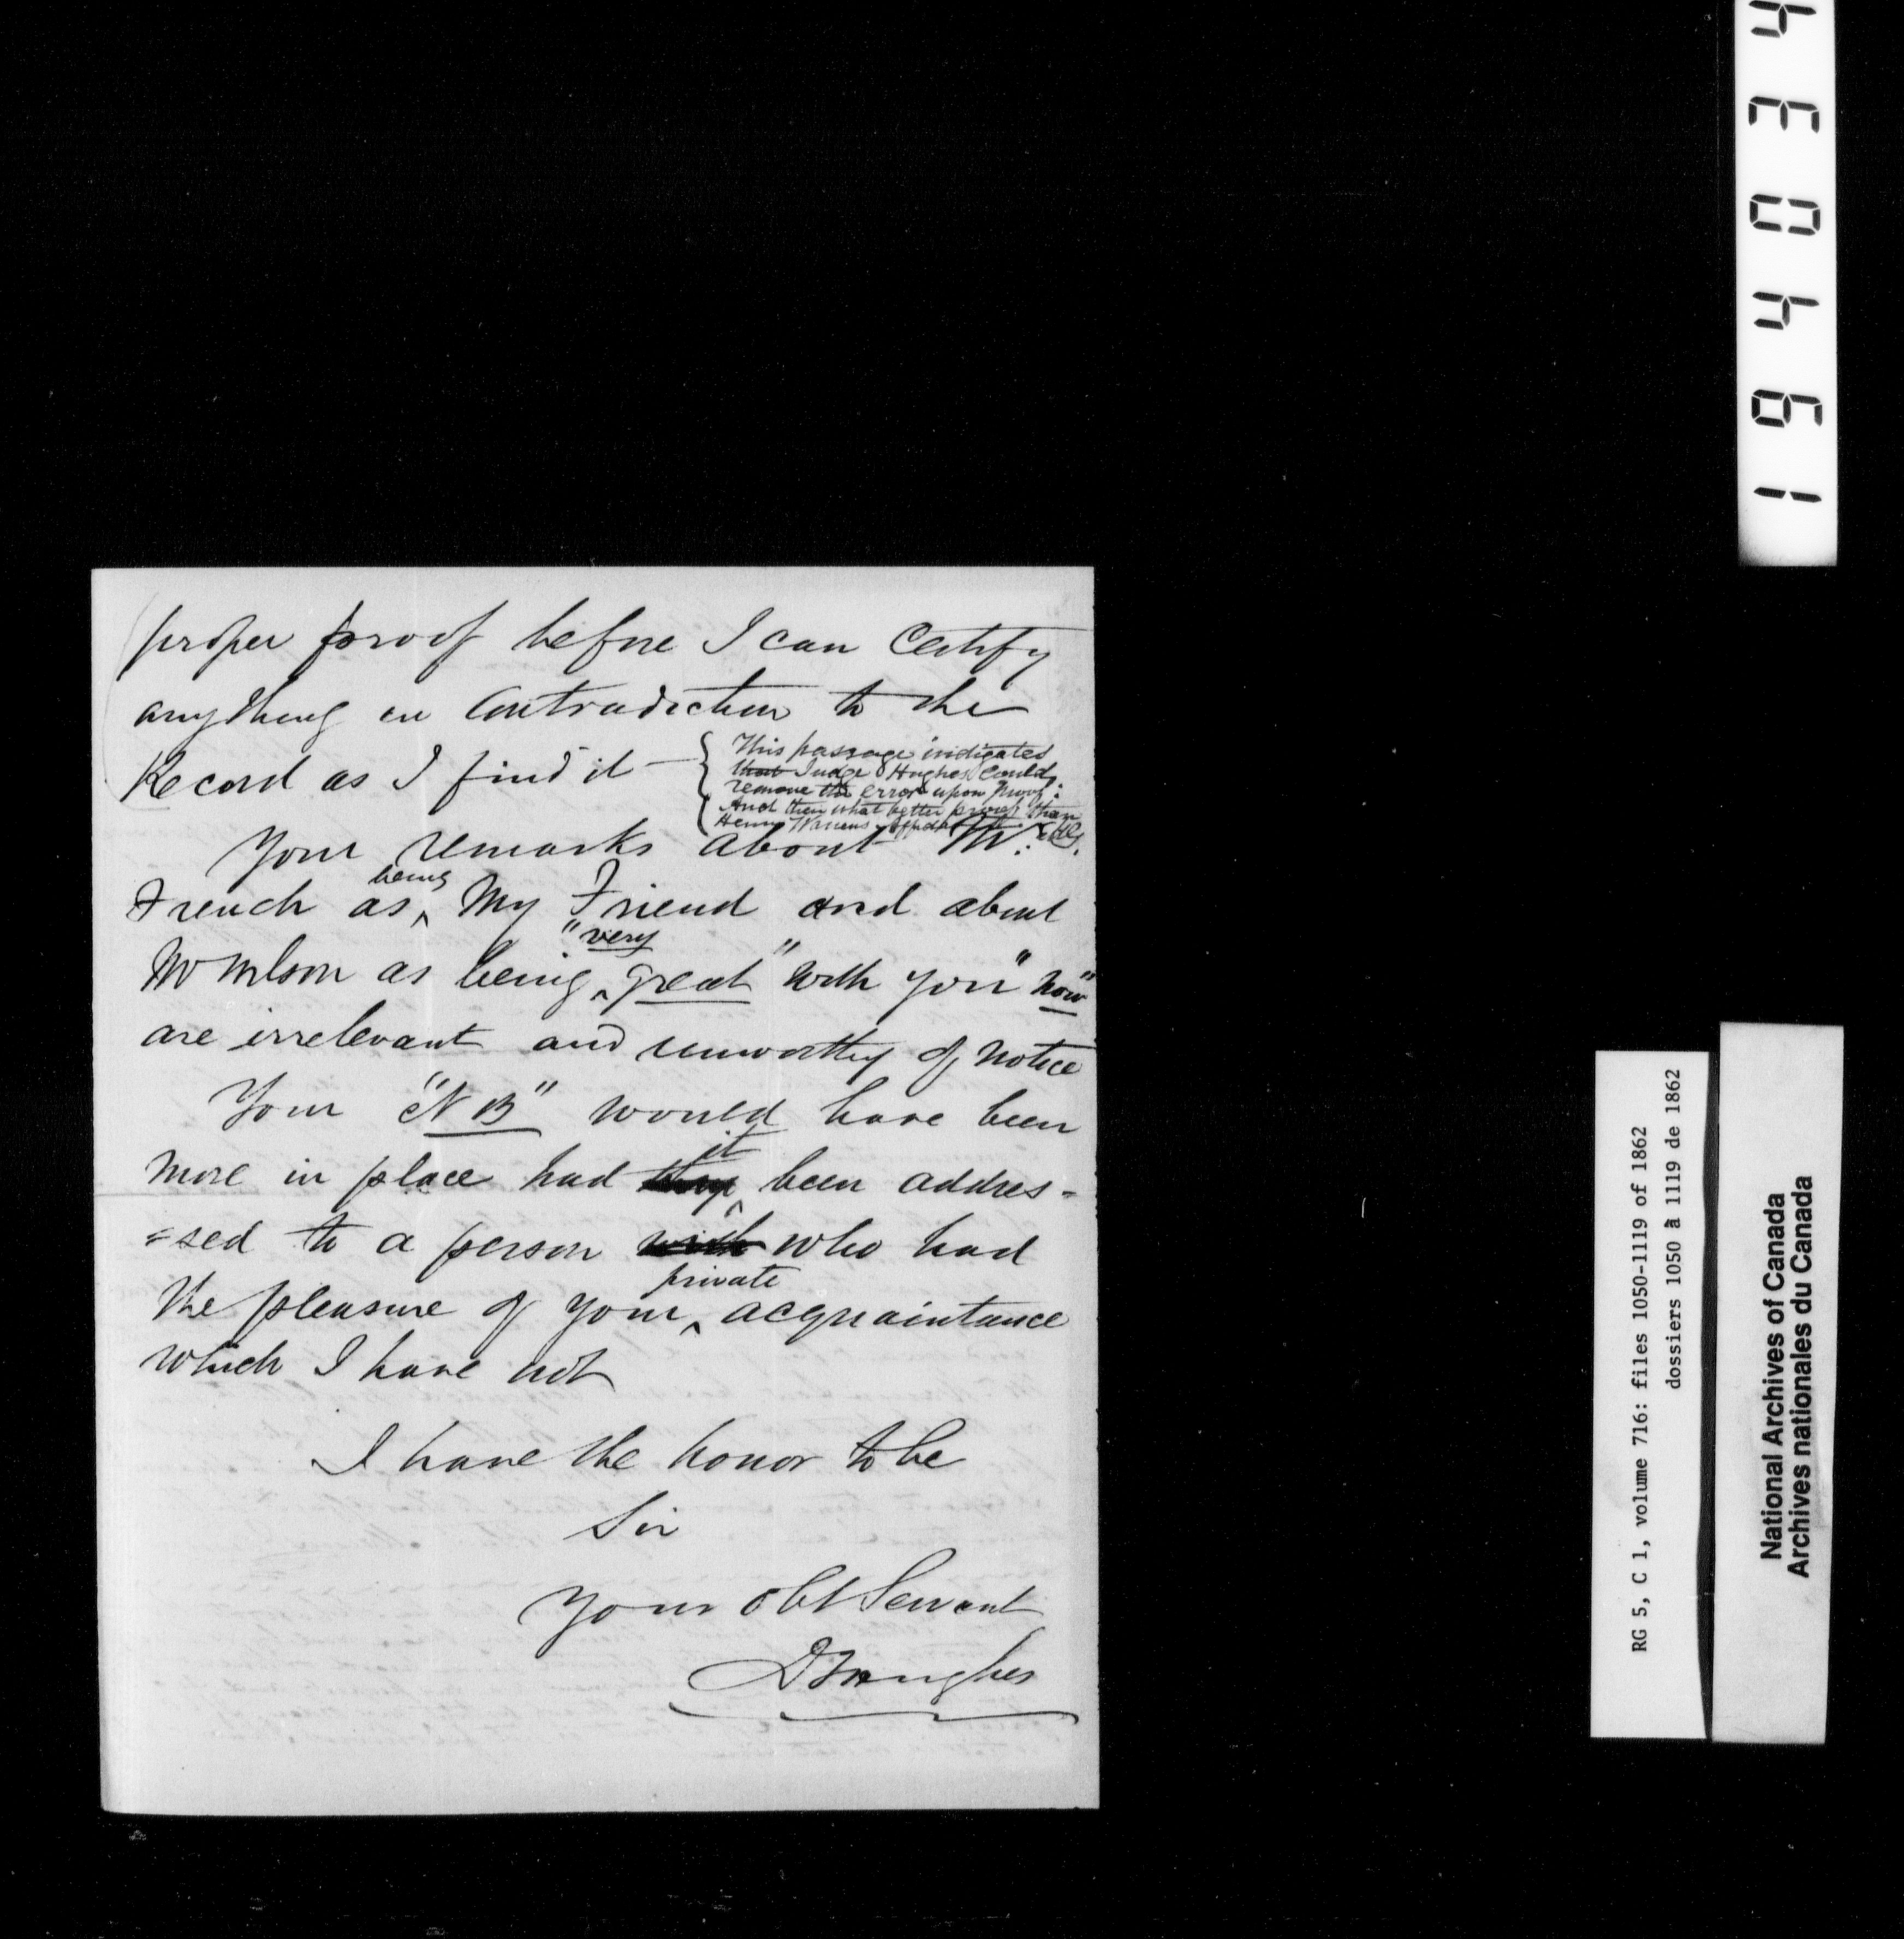 proper proof before I can Certify
anything in Contradiction to the
Record as I find it —
{ This passage indicated
that Judge Hughes could,
remove the error upon proof:
And then what better proof than
Henry Warrens
Your remarks about Mr.
French as being My Friend and about
Mr Wilson as being "very great" with you "now"
are irrelevant and unworthy of notice
Your "NB" would have been
more in place had they it been addres=
=sed to a person with who had
the pleasure of your private acquaintance
which I have not
I have the honor to be
Sir
Your obt Servant
D J Hughes
194034
RG 5, C 1, volume 716: files 1050-1119 of 1862
dossiers 1050 à 1119 de 1862
National Archives of Canada
Archives nationales du Canada